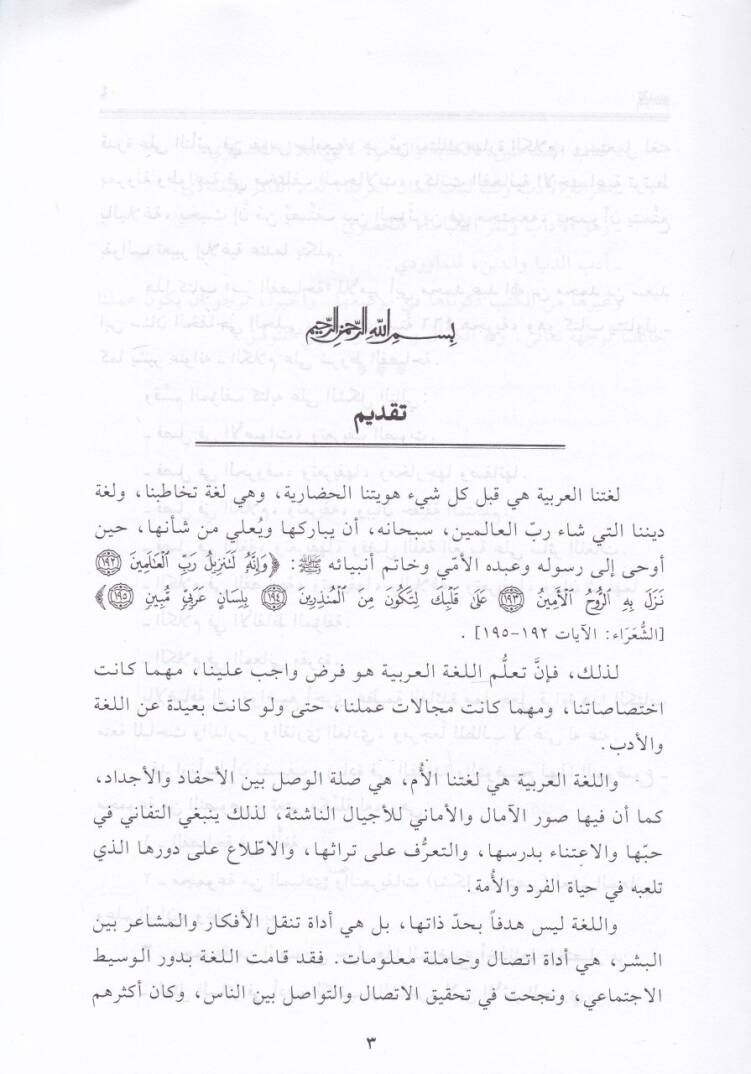 بِسْمِ اللهِ الرَّحْمٰنِ الرَّحِيْمِ
تقديم
لغتنا العربية هي قبل كل شيء هويتنا الحضارية، وهي لغة تخاطبنا، ولغة
ديننا التي شاء ربّ العالمين، سبحانه، أن يباركها ويُعلي من شأنها، حين
أوحى إلى رسوله وعبده الأمّي وخاتم أنبيائه ﷺ: ﴿وَإِنَّهُ لَتَنزِيلُ رَبِّ ٱلْعَٰلَمِينَ ﴿١٩٢﴾
نَزَلَ بِهِ ٱلرُّوحُ ٱلْأَمِينُ ﴿١٩٣﴾ عَلَىٰ قَلْبِكَ لِتَكُونَ مِنَ ٱلْمُنذِرِينَ ﴿١٩٤﴾ بِلِسَانٍ عَرَبِيٍّ مُّبِينٍ ﴿١٩٥﴾﴾
[الشُّعَرَاء: الآيات ١٩٢-١٩٥] .
لذلك، فإنَّ تعلُّم اللغة العربية هو فرض واجب علينا، مهما كانت
اختصاصاتنا، ومهما كانت مجالات عملنا، حتى ولو كانت بعيدة عن اللغة
والأدب.
واللغة العربية هي لغتنا الأم، هي صلة الوصل بين الأحفاد والأجداد،
كما أن فيها صور الآمال والأماني للأجيال الناشئة، لذلك ينبغي التفاني في
حبّها والاعتناء بدرسها، والتعرُّف على تراثها، والاطّلاع على دورها الذي
تلعبه في حياة الفرد والأُمة.
واللغة ليس هدفاً بحدّ ذاتها، بل هي أداة تنقل الأفكار والمشاعر بين
البشر، هي أداة اتصال وحاملة معلومات. فقد قامت اللغة بدور الوسيط
الاجتماعي، ونجحت في تحقيق الاتصال والتواصل بين الناس، وكان أكثرهم
٣